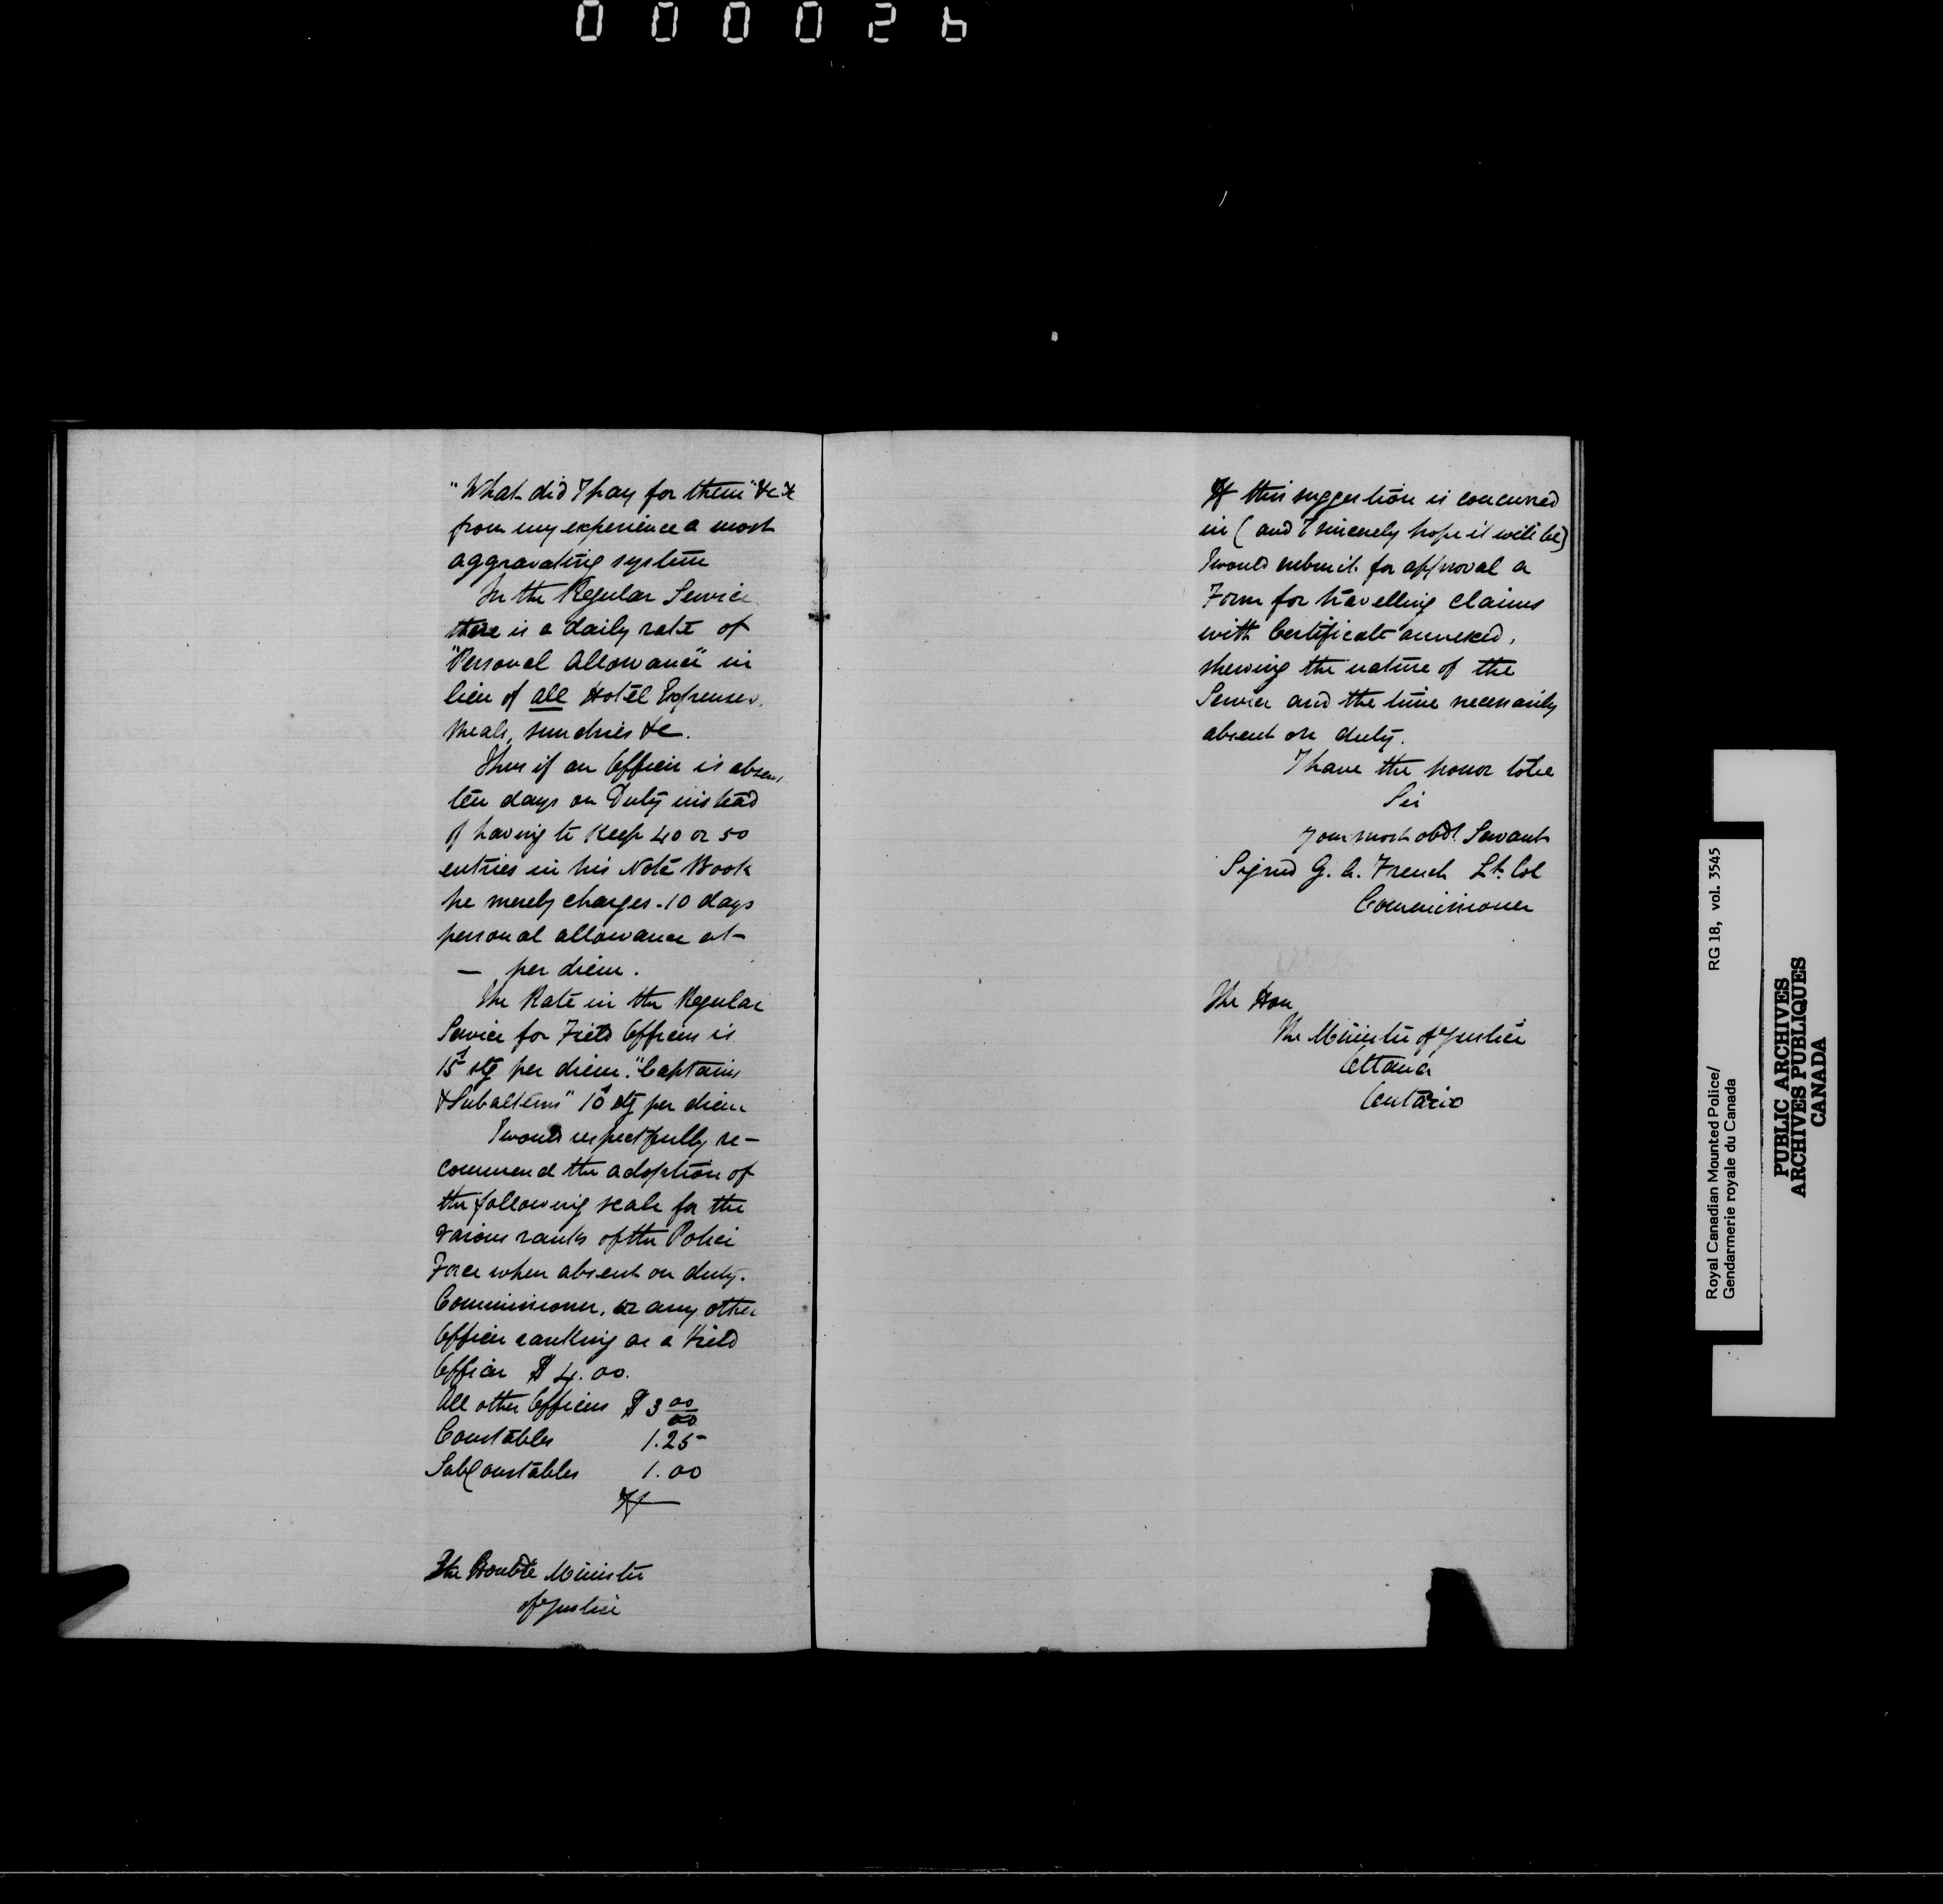 000026
"What did I pay for them" &c &c
from my experience a most
aggravating system
In the Regular Service
there is a daily rate of
"Personal Allowance" in
lieu of all Hotel Expenses,
Meals, sundries &c.
Thus if an Officer is absent
ten days on Duty instead
of having to keep 40 or 50
entries in his Note Book
he merely charges - 10 days
personal allowance at -
— per diem.
The Rate in the Regular
Service for Field Officers is
15s stg per diem. "Captains
& Subalterns" 10s stg per diem
I would respectfully re-
commend the adoption of
the following scale for the
various ranks of the Police
Force when absent on duty.
Commissioner, or any other
Officer ranking as a Field
Officer $4.00.
All other Officers $3 00/00
Constables 1.25
Sub Constables 1.00
If
The Honble Minister
of Justice
If this suggestion is concurred
in (and I sincerely hope it will be)
I would submit for approval a
Form for travelling claims
with Certificate annexed,
shewing the nature of the
Service and the time necessarily
absent on duty.
I have the honor to be
Sir
Your most obdt Servant
Signed G. A. French Lt. Col
Commissioner
The Hon
The Minister of Justice
Ottawa
Ontario
Royal Canadian Mounted Police/
Gendarmerie royale du Canada
RG 18, vol. 3545
PUBLIC ARCHIVES
ARCHIVES PUBLIQUES
CANADA